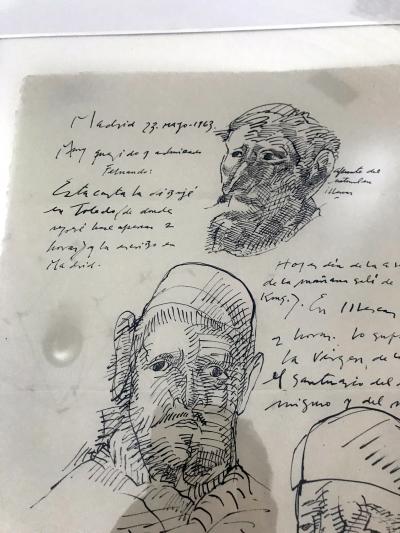 Madrid 23-Mayo-1963
Muy querido y admirado
Fernando:
Esta carta la dibujé
en Toledo (de donde
regresé hace apenas 2
horas) y la escribo en
Madrid.
apunte del
natural en
Illescas
Hoy es día de la
de la mañana salí de
En Illescas
2 horas. Lo
la Virgen, de
el santuario del
mismo y del